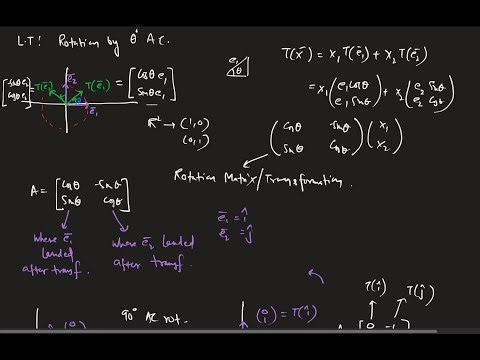 L.T! Rotation by θ° A.C.
ē₂
[-sinθ e₁
cosθ e₁] = T(ē₂) T(ē₁) = [cosθ e₁
sinθ e₁]
θ
ē₁
ℝ² → (1,0)
(0,1)
e₁
θ
T(x̄) = x₁T(ē₁) + x₂T(ē₂)
= x₁(e₁cosθ
e₁sinθ) + x₂(e₂ sinθ
e₂ cosθ)
(cosθ sinθ
sinθ cosθ)(x₁
x₂)
Rotation Matrix/Transformation.
A = [cosθ -sinθ
sinθ cosθ]
where ē₁
landed
after transf.
where ē₂ landed
after transf.
ē₁ = î
ē₂ = ĵ
(0
1)
90° AC rot.
(0
1) = T(î)
T(î)
T(ĵ)
A = [0 -1]